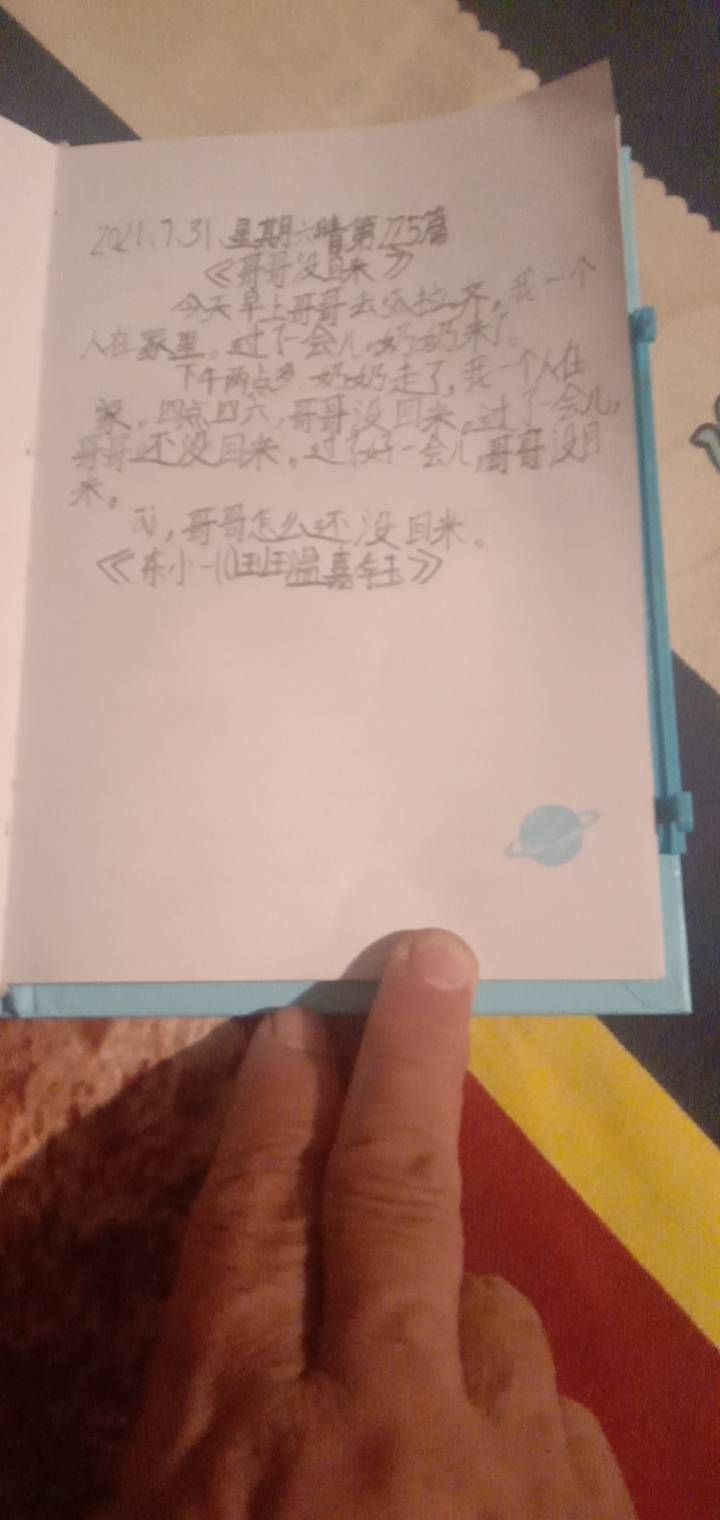 2021、7、31、星期六晴第225篇
《哥哥没回来》
今天早上哥哥去 拉齐，我一个
人在家里。过了一会儿，奶奶来了。
下午两点多 奶奶走了，我一个人在
家。四点四六，哥哥没回来。过了一会儿，
哥哥还没回来。过了好一会儿，哥哥没回
来。
，哥哥怎么还没回来。
《东小一 班温嘉钰》